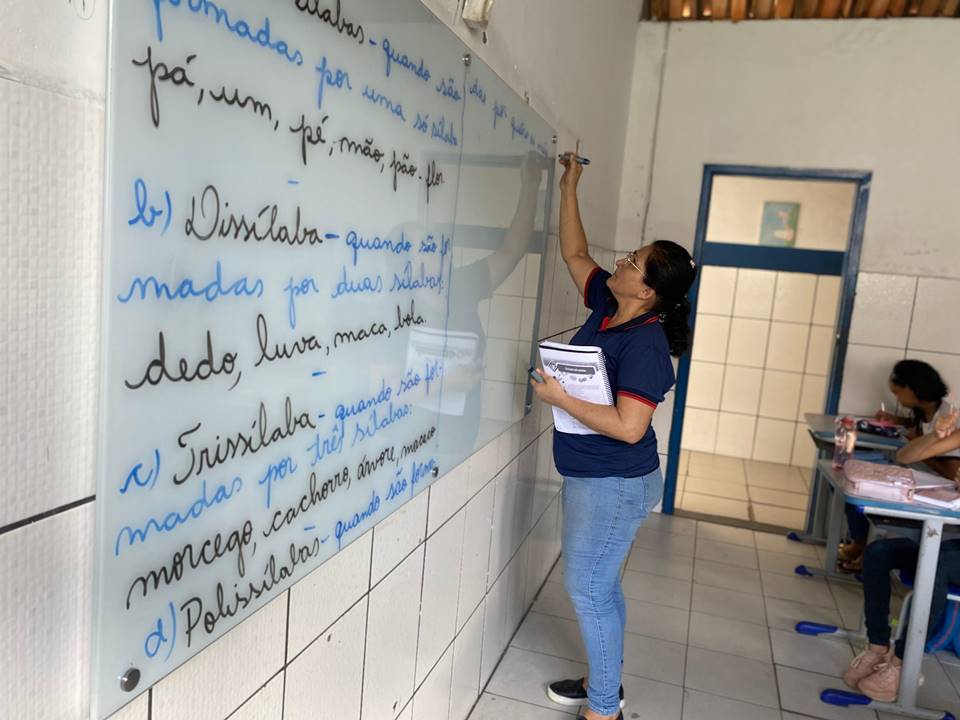 sílabas - quando são
formadas por uma só sílaba
pá, um, pé, mão, pão. flor.
b) Dissílaba - quando são for
madas por duas sílabas:
dedo, luva, maca, bola.
c) Trissílaba - quando são for-
madas por três sílabas:
morcego, cachorro, árvore, macaco
d) Polissílabas - quando são forma
das por quatro ou